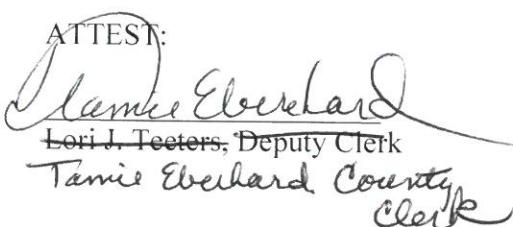 ATTEST:
Tamie Eberhard
Lori J. Teeters, Deputy Clerk
Tamie Eberhard County
Clerk